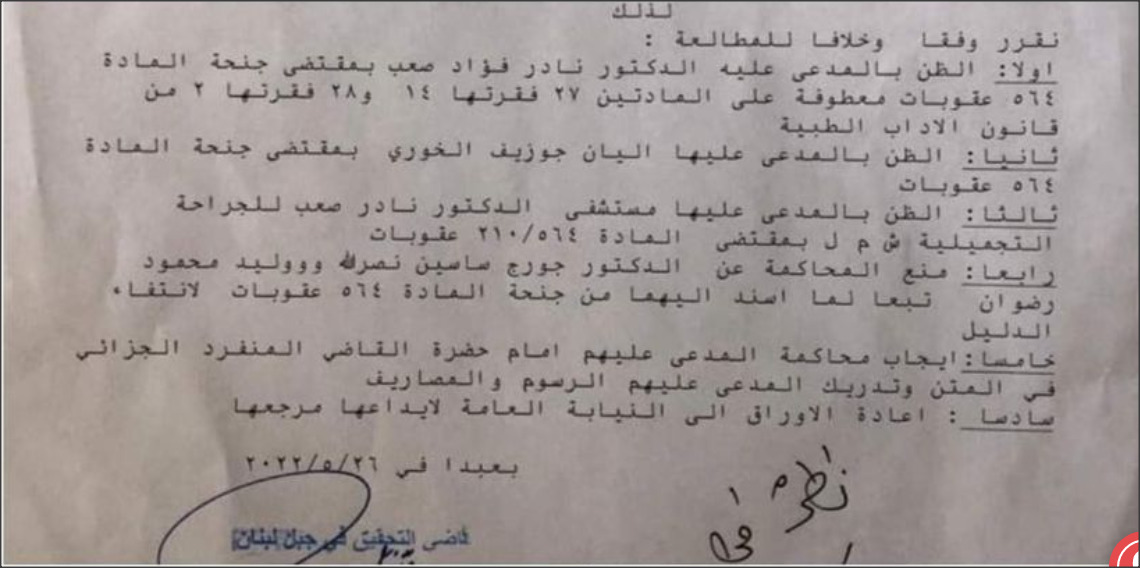 لذلك
نقرر وفقا وخلافا للمطالعة :
اولا: الظن بالمدعى عليه الدكتور نادر فؤاد صعب بمقتضى جنحة المادة
٥٦٤ عقوبات معطوفة على المادتين ٢٧ فقرتها ١٤ و٢٨ فقرتها ٢ من
قانون الاداب الطبية
ثانيا: الظن بالمدعى عليها اليان جوزيف الخوري بمقتضى جنحة المادة
٥٦٤ عقوبات
ثالثا: الظن بالمدعى عليها مستشفى الدكتور نادر صعب للجراحة
التجميلية ش م ل بمقتضى المادة ٢١٠/٥٦٤ عقوبات
رابعا: منع المحاكمة عن الدكتور جورج ساسين نصرالله وووليد محمود
رضوان تبعا لما اسند اليهما من جنحة المادة ٥٦٤ عقوبات لانتفاء
الدليل
خامسا: ايجاب محاكمة المدعى عليهم امام حضرة القاضي المنفرد الجزائي
في المتن وتدريك المدعى عليهم الرسوم والمصاريف
سادسا : اعادة الاوراق الى النيابة العامة لايداعها مرجعها
بعبدا في ٢٠٢٢/٥/٢٦
قاضي التحقيق في جبل لبنان